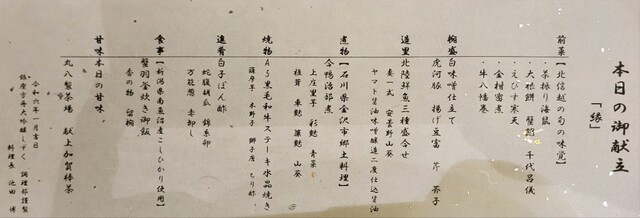 本日の御献立
「縁」
前菜【北信越の旬の味覚】
・茶振り海鼠
・大根餅 蟹餡 千代呂儀
・えびす寒天
・金柑蜜煮
・牛八幡巻
椀盛 白味噌仕立て
虎河豚 揚げ豆富 芹 芥子
造里 北陸鮮魚三種盛合せ
妻一式 安曇野山葵
ヤマト醤油味噌醸造二度仕込醤油
煮物【石川県金沢市郷土料理】
合鴨治部煮
上庄里子 彩麩 青菜
椎茸 車麩 簾麩 山葵
焼物 A5黒毛和牛ステーキ水晶焼き
薩摩芋 木野子 獅子唐 ちり酢
進肴 白子ぽん酢
蛇腹胡瓜 錦糸卵
万能葱 赤卸し
食事【新潟県南魚沼産こしひかり使用】
蟹羽釜炊き御飯
香の物 留椀
甘味 本日の甘味
丸八製茶場 献上加賀棒茶
令和六年一月吉日
銀座古舟大吟醸しずく 調理部謹製
料理長 池田 博